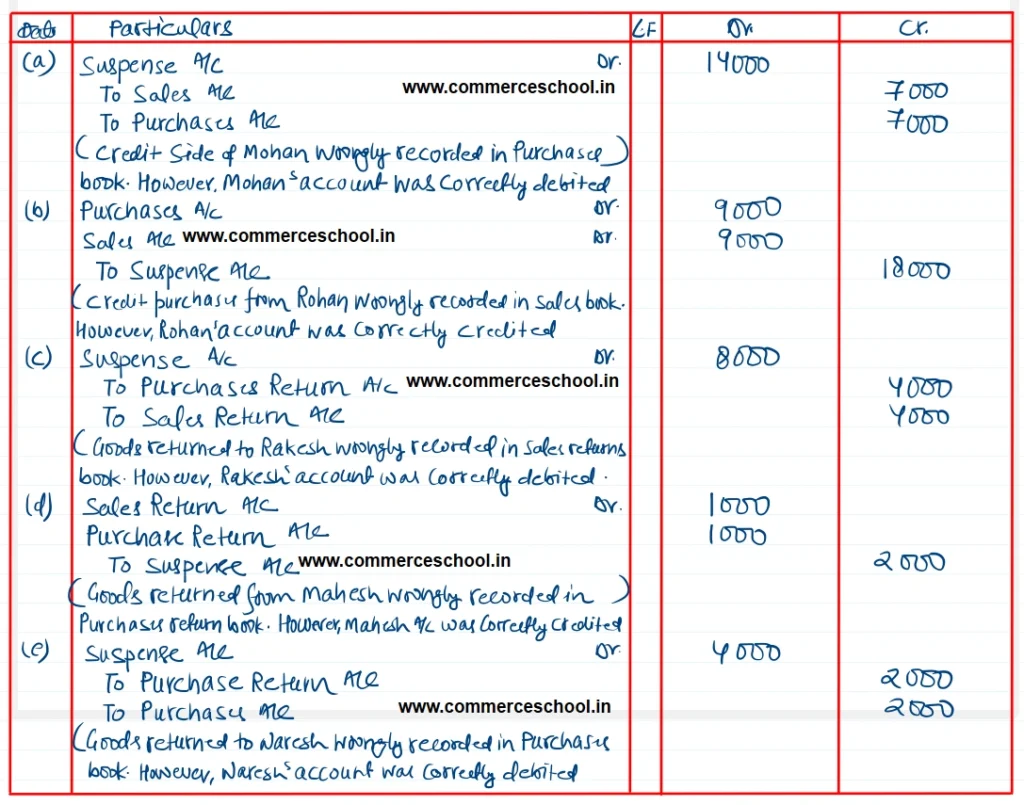 Date Particulars L.F Dr. Cr.
(a) Suspense A/c Dr. 14000
To Sales A/c www.commerceschool.in 7000
To Purchases A/c 7000
(Credit Side of Mohan woongly recorded in Purchases)
book. However, Mohan's account was correctly debited
(b) Purchases A/c Dr. 9000
Sales A/c www.commerceschool.in Dr. 9000
To Suspense A/c 18000
(Credit purchases from Rohan woongly recorded in sales book.
However, Rohan' account was correctly credited
(c) Suspense A/c Dr. 8000
To Purchases Return A/c www.commerceschool.in 4000
To Sales Return A/c 4000
(Goods returned to Rakesh woongly recorded in sales returns
book. However, Rakesh' account was correctly debited.
(d) Sales Return A/c Dr. 1000
Purchase Return A/c 1000
To Suspense A/c www.commerceschool.in 2000
(Goods returned from Mahesh woongly recorded in)
Purchases return book. However, Mahesh A/c was correctly credited
(e) Suspense A/c Dr. 4000
To Purchase Return A/c 2000
To Purchases A/c www.commerceschool.in 2000
(Goods returned to Naresh woongly recorded in Purchases
book. However, Naresh's account was correctly debited